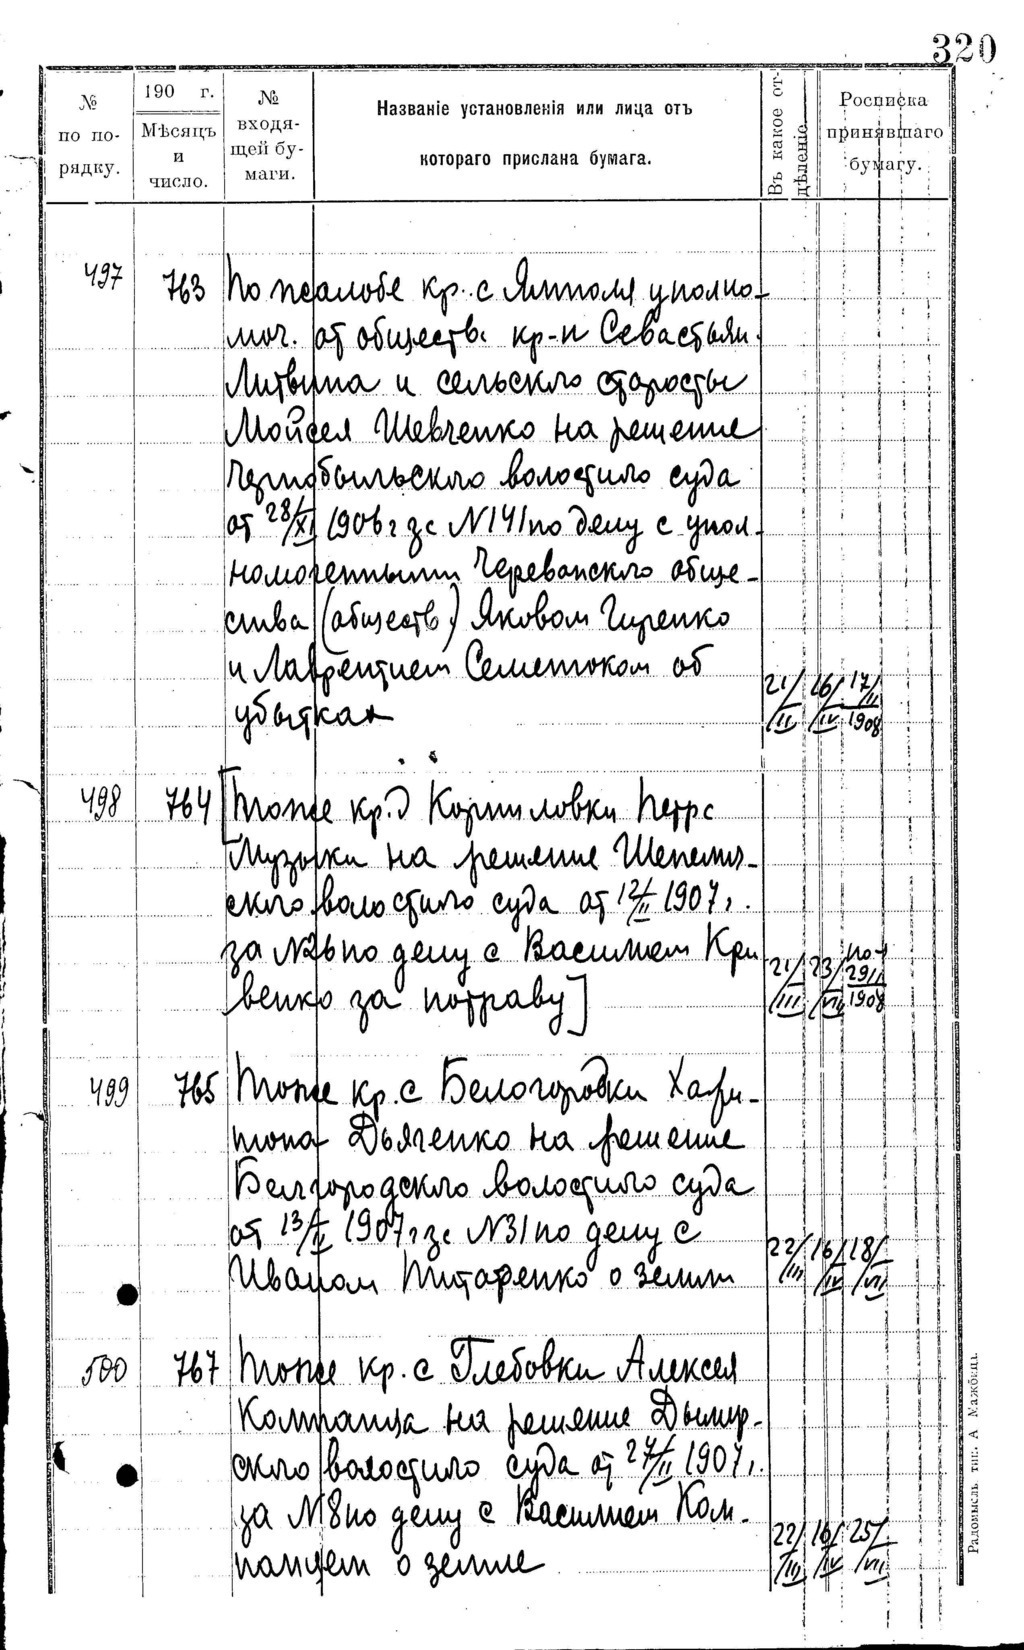 320
№ по по-рядку.
190 г.
Мѣсяцъ и число.
№ входя-щей бу-маги.
Названіе установленія или лица отъ
котораго прислана бумага.
Въ какое от-дѣленіе.
Росписка принявшаго бумагу.
497 763 По жалобе кр. с Ямполя уполно-
моч. от обществ. кр-н Севастьян.
Литвина и сельскло старосты
Мойсея Шевченко на решение
Чернобыльскло волостило суда
от 28/XI 1906 г зс N141 по делу с упол-
номоченными Череванскло обще-
ства (обществ) Яковом Гиренко
и Лаврентием Семетоком об
убытках
21/II 16/IV 17/II 1908
498 764 [Тоже кр. д Корниловки Петрс
Музыки на решение Шепелич-
скло волостило суда от 12/II 1907 г.
за N26 по делу с Василием Кри
венко за потраву]
21/III 23/VII 29/II 1908
499 765 Тоже кр. с Белогородки Хари-
тона Дьяченко на решение
Белгородскло волостило суда
от 13/II 1907 г зс N31 по делу с
Иваном Титаренко о земли
22/III 16/IV 18/VII
500 767 Тоже кр. с Глебовки Алексея
Компанца на решение Дымер-
скло волостило суда от 27/II 1907 г.
за N8 по делу с Василием Ком-
панцем о земле
22/III 16/IV 25/VII
Радомысль тип. А Мажбиц.